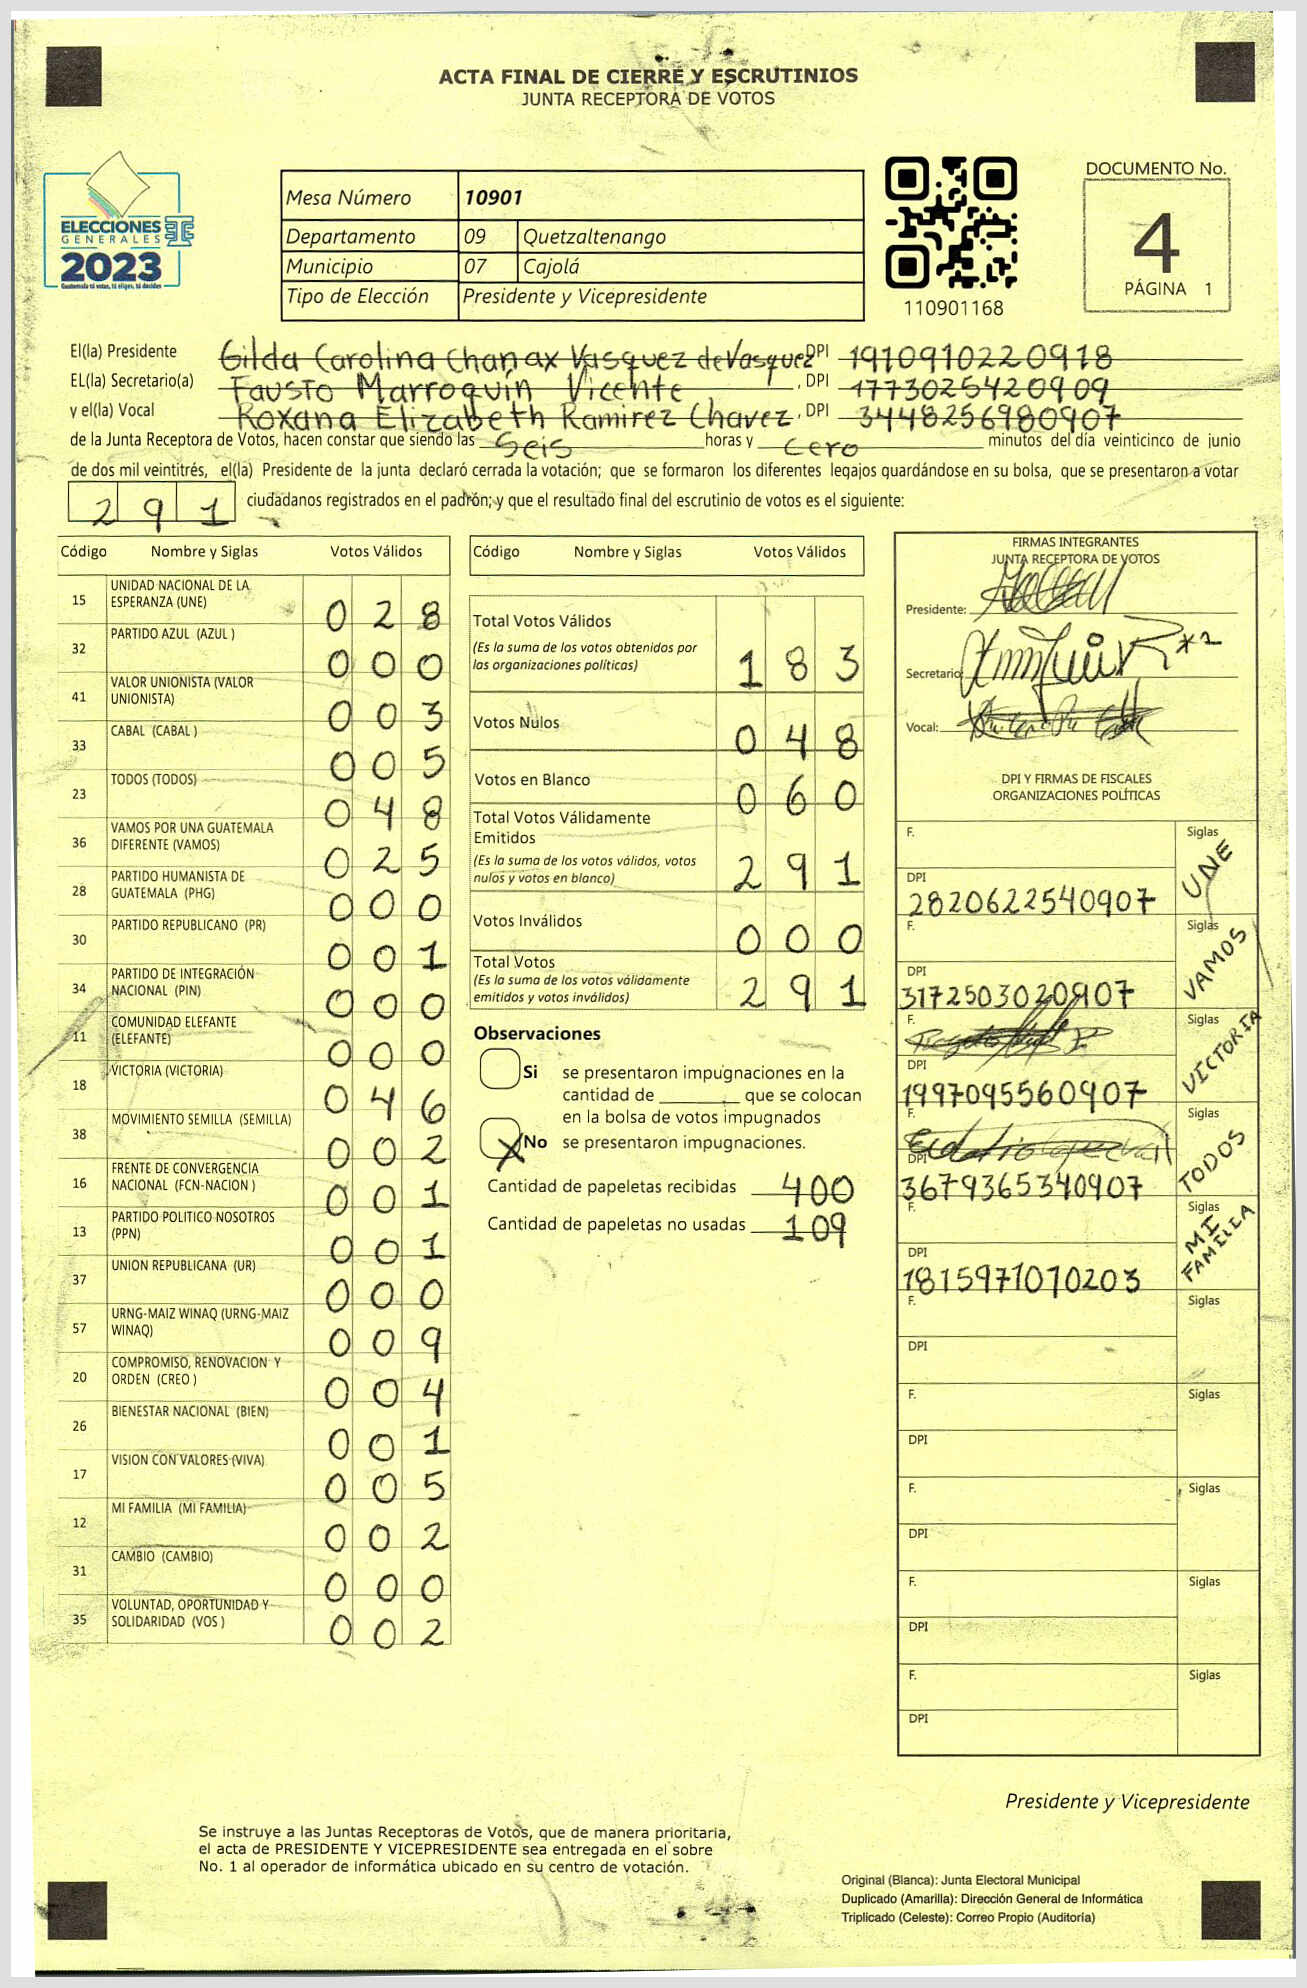 ACTA FINAL DE CIERRE Y ESCRUTINIOS
JUNTA RECEPTORA DE VOTOS
ELECCIONES
GENERALES
2023
Guatemala tú votas, tú eliges, tú decides
Mesa Número 10901
Departamento 09 Quetzaltenango
Municipio 07 Cajolá
Tipo de Elección Presidente y Vicepresidente
110901168
DOCUMENTO No.
4
PÁGINA 1
El(la) Presidente Gilda Carolina Chanax Vasquez de Vasquez DPI 1910910220918
EL(la) Secretario(a) Fausto Marroquín Vicente, DPI 1773025420909
y el(la) Vocal Roxana Elizabeth Ramirez Chavez, DPI 3448256980907
de la Junta Receptora de Votos, hacen constar que siendo las Seis horas y cero minutos del día veinticinco de junio
de dos mil veintitrés, el(la) Presidente de la junta declaró cerrada la votación; que se formaron los diferentes legajos guardándose en su bolsa, que se presentaron a votar
291 ciudadanos registrados en el padrón; y que el resultado final del escrutinio de votos es el siguiente:
Código Nombre y Siglas Votos Válidos
15 UNIDAD NACIONAL DE LA
ESPERANZA (UNE) 028
32 PARTIDO AZUL (AZUL ) 000
41 VALOR UNIONISTA (VALOR
UNIONISTA) 003
33 CABAL (CABAL ) 005
23 TODOS (TODOS) 048
36 VAMOS POR UNA GUATEMALA
DIFERENTE (VAMOS) 025
28 PARTIDO HUMANISTA DE
GUATEMALA (PHG) 000
30 PARTIDO REPUBLICANO (PR) 001
34 PARTIDO DE INTEGRACIÓN
NACIONAL (PIN) 000
11 COMUNIDAD ELEFANTE
(ELEFANTE) 000
18 VICTORIA (VICTORIA) 046
38 MOVIMIENTO SEMILLA (SEMILLA) 002
16 FRENTE DE CONVERGENCIA
NACIONAL (FCN-NACION ) 001
13 PARTIDO POLITICO NOSOTROS
(PPN) 001
37 UNION REPUBLICANA (UR) 000
57 URNG-MAIZ WINAQ (URNG-MAIZ
WINAQ) 009
20 COMPROMISO, RENOVACION Y
ORDEN (CREO ) 004
26 BIENESTAR NACIONAL (BIEN) 001
17 VISION CON VALORES (VIVA) 005
12 MI FAMILIA (MI FAMILIA) 002
31 CAMBIO (CAMBIO) 000
35 VOLUNTAD, OPORTUNIDAD Y
SOLIDARIDAD (VOS ) 002
Código Nombre y Siglas Votos Válidos
Total Votos Válidos
(Es la suma de los votos obtenidos por
las organizaciones políticas) 183
Votos Nulos 048
Votos en Blanco 060
Total Votos Válidamente
Emitidos
(Es la suma de los votos válidos, votos
nulos y votos en blanco) 291
Votos Inválidos 000
Total Votos
(Es la suma de los votos válidamente
emitidos y votos inválidos) 291
Observaciones
Si se presentaron impugnaciones en la
cantidad de ________ que se colocan
en la bolsa de votos impugnados
X No se presentaron impugnaciones.
Cantidad de papeletas recibidas 400
Cantidad de papeletas no usadas 109
FIRMAS INTEGRANTES
JUNTA RECEPTORA DE VOTOS
Presidente:
Secretario:
Vocal:
DPI Y FIRMAS DE FISCALES
ORGANIZACIONES POLÍTICAS
F. Siglas
UNE
DPI
2820622540907
F. Siglas
VAMOS
DPI
3172503020907
F. Siglas
VICTORIA
DPI
1997095560907
F. Siglas
TODOS
DPI
3679365340907
F. Siglas
MI
FAMILIA
DPI
1815971070203
F. Siglas
DPI
F. Siglas
DPI
F. Siglas
DPI
F. Siglas
DPI
F. Siglas
DPI
Presidente y Vicepresidente
Se instruye a las Juntas Receptoras de Votos, que de manera prioritaria,
el acta de PRESIDENTE Y VICEPRESIDENTE sea entregada en el sobre
No. 1 al operador de informática ubicado en su centro de votación.
Original (Blanca): Junta Electoral Municipal
Duplicado (Amarilla): Dirección General de Informática
Triplicado (Celeste): Correo Propio (Auditoría)